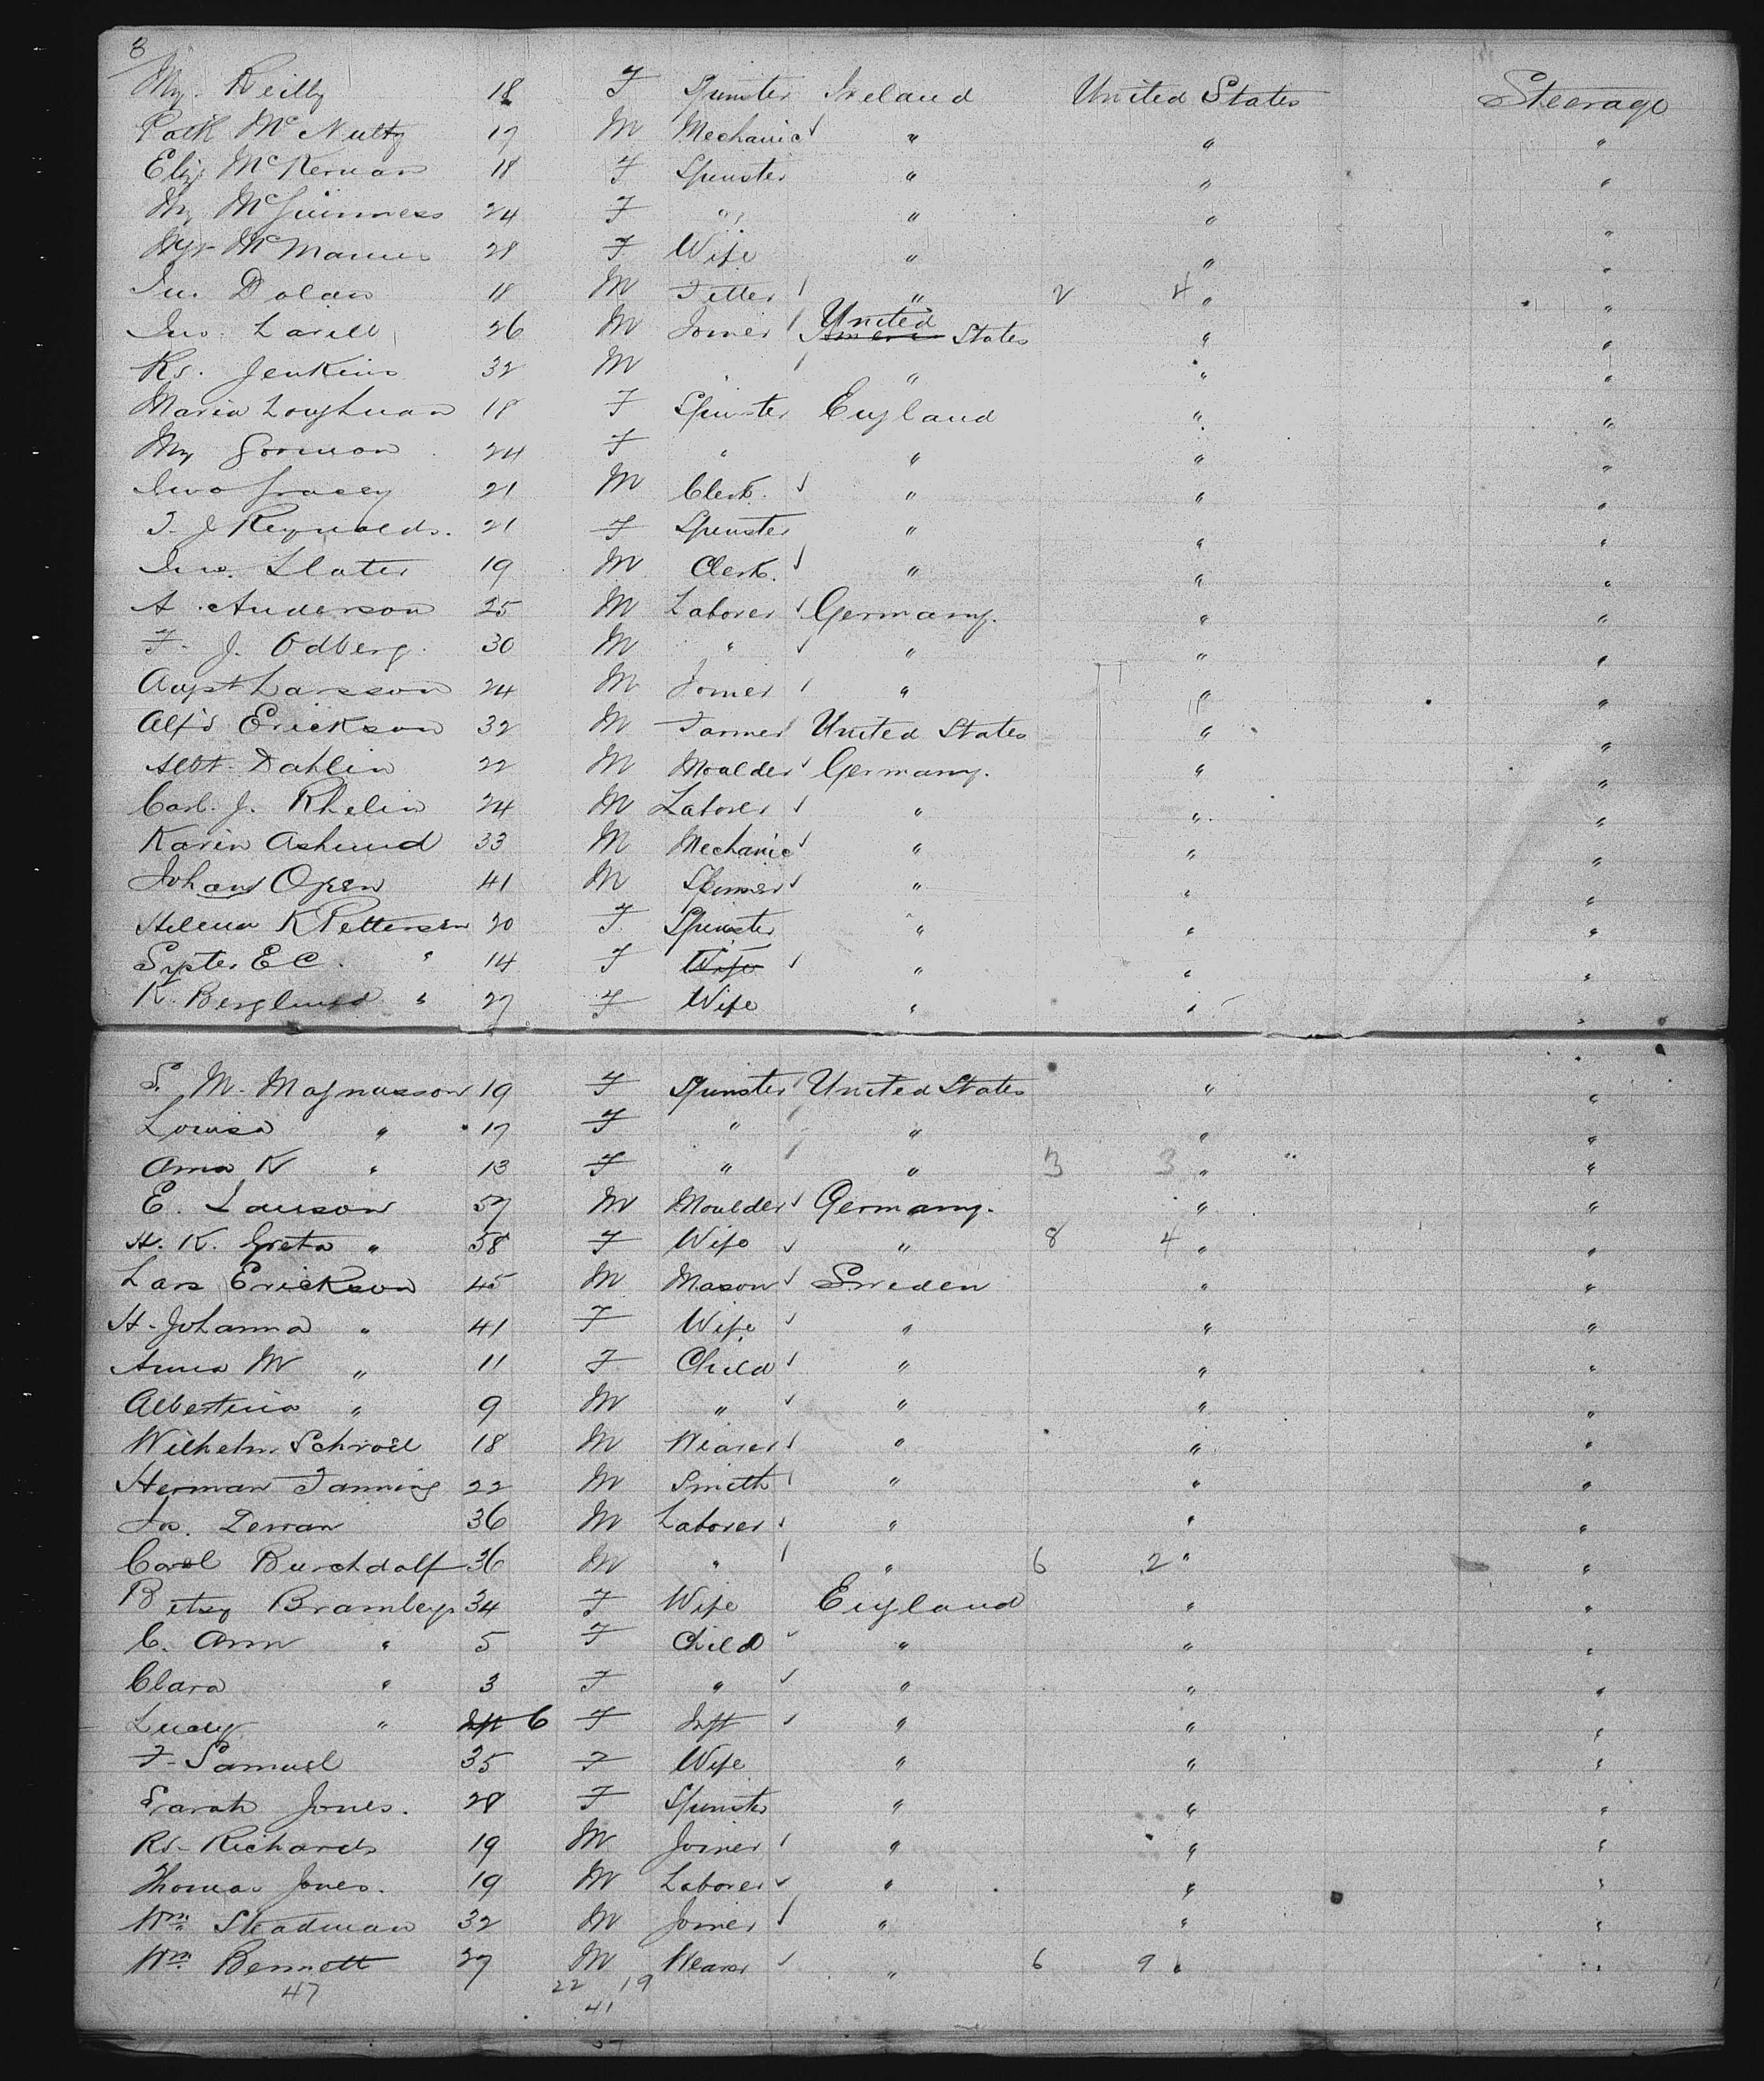 3
My. Reilly 18 F Spinster Ireland United States Steerage
Patk McNulty 17 M Mechanic " " "
Eliz McKernan 18 F Spinster " " "
My McGuinness 24 F " " " "
Mgt McManus 28 F Wife " " "
Jn. Dolan 18 M Fitter " 2 4 " "
Jno. 26 M Joiner United Americ States " "
Rd. Jenkins 32 M " " " "
Maria Loughnan 18 F Spinster England " "
My Gorman 24 F " " " "
Jno Gracey 21 M Clerk. " " "
T. J Reynolds. 21 F Spinster " " "
Jno. Slater 19 M Clerk. " " "
A. Anderson 25 M Laborer Germany. " "
F. J. Odberg. 30 M " " " "
Augst Larsson 24 M Joiner " " "
Alfd Erickson 32 M Farmer United States " "
Albt. Dahlin 22 M Moulder Germany. " "
Carl. J. Rhelin 24 M Laborer " " "
Karin Aslund 33 M Mechanic " " "
Johan Open 41 M Spinner " " "
Helena K Pettersen 20 F Spinster " " "
Syster E C. " 14 F Wife " " "
K. Berglund " 27 F Wife " " "
S. M. Magnusson 19 F Spinster United States " "
Louisa " 17 F " " " "
Anna K " 13 F " " 3 3 " "
E. Lauson 57 M Moulder Germany. " "
H. K. Greta " 58 F Wife " 8 4 " "
Lars Erickson 45 M Mason Sweden " "
H. Johanna " 41 F Wife " " "
Anna M " 11 F Child " " "
Albertina " 9 M " " " "
Wilhelm Schroel 18 M Weaver " " "
Herman Tanning 22 M Smith " " "
36 M Laborer " " "
Carl Burchdolf 36 M " " 6 2 " "
Betsy Brambley 34 F Wife England " "
C. Ann " 5 F Child " " "
Clara " 3 F " " " "
Lucy " 6 F Inft " " "
F. Samuel 35 F Wife " " "
Sarah Jones. 28 F Spinster " " "
Rd. Richards 19 M Joiner " " "
Thomas Jones. 19 M Laborer " " "
Wm. Steadman 32 M Joiner " " "
Wm. Bennett 27 M Weaver " 6 9 " "
47 22 19
41